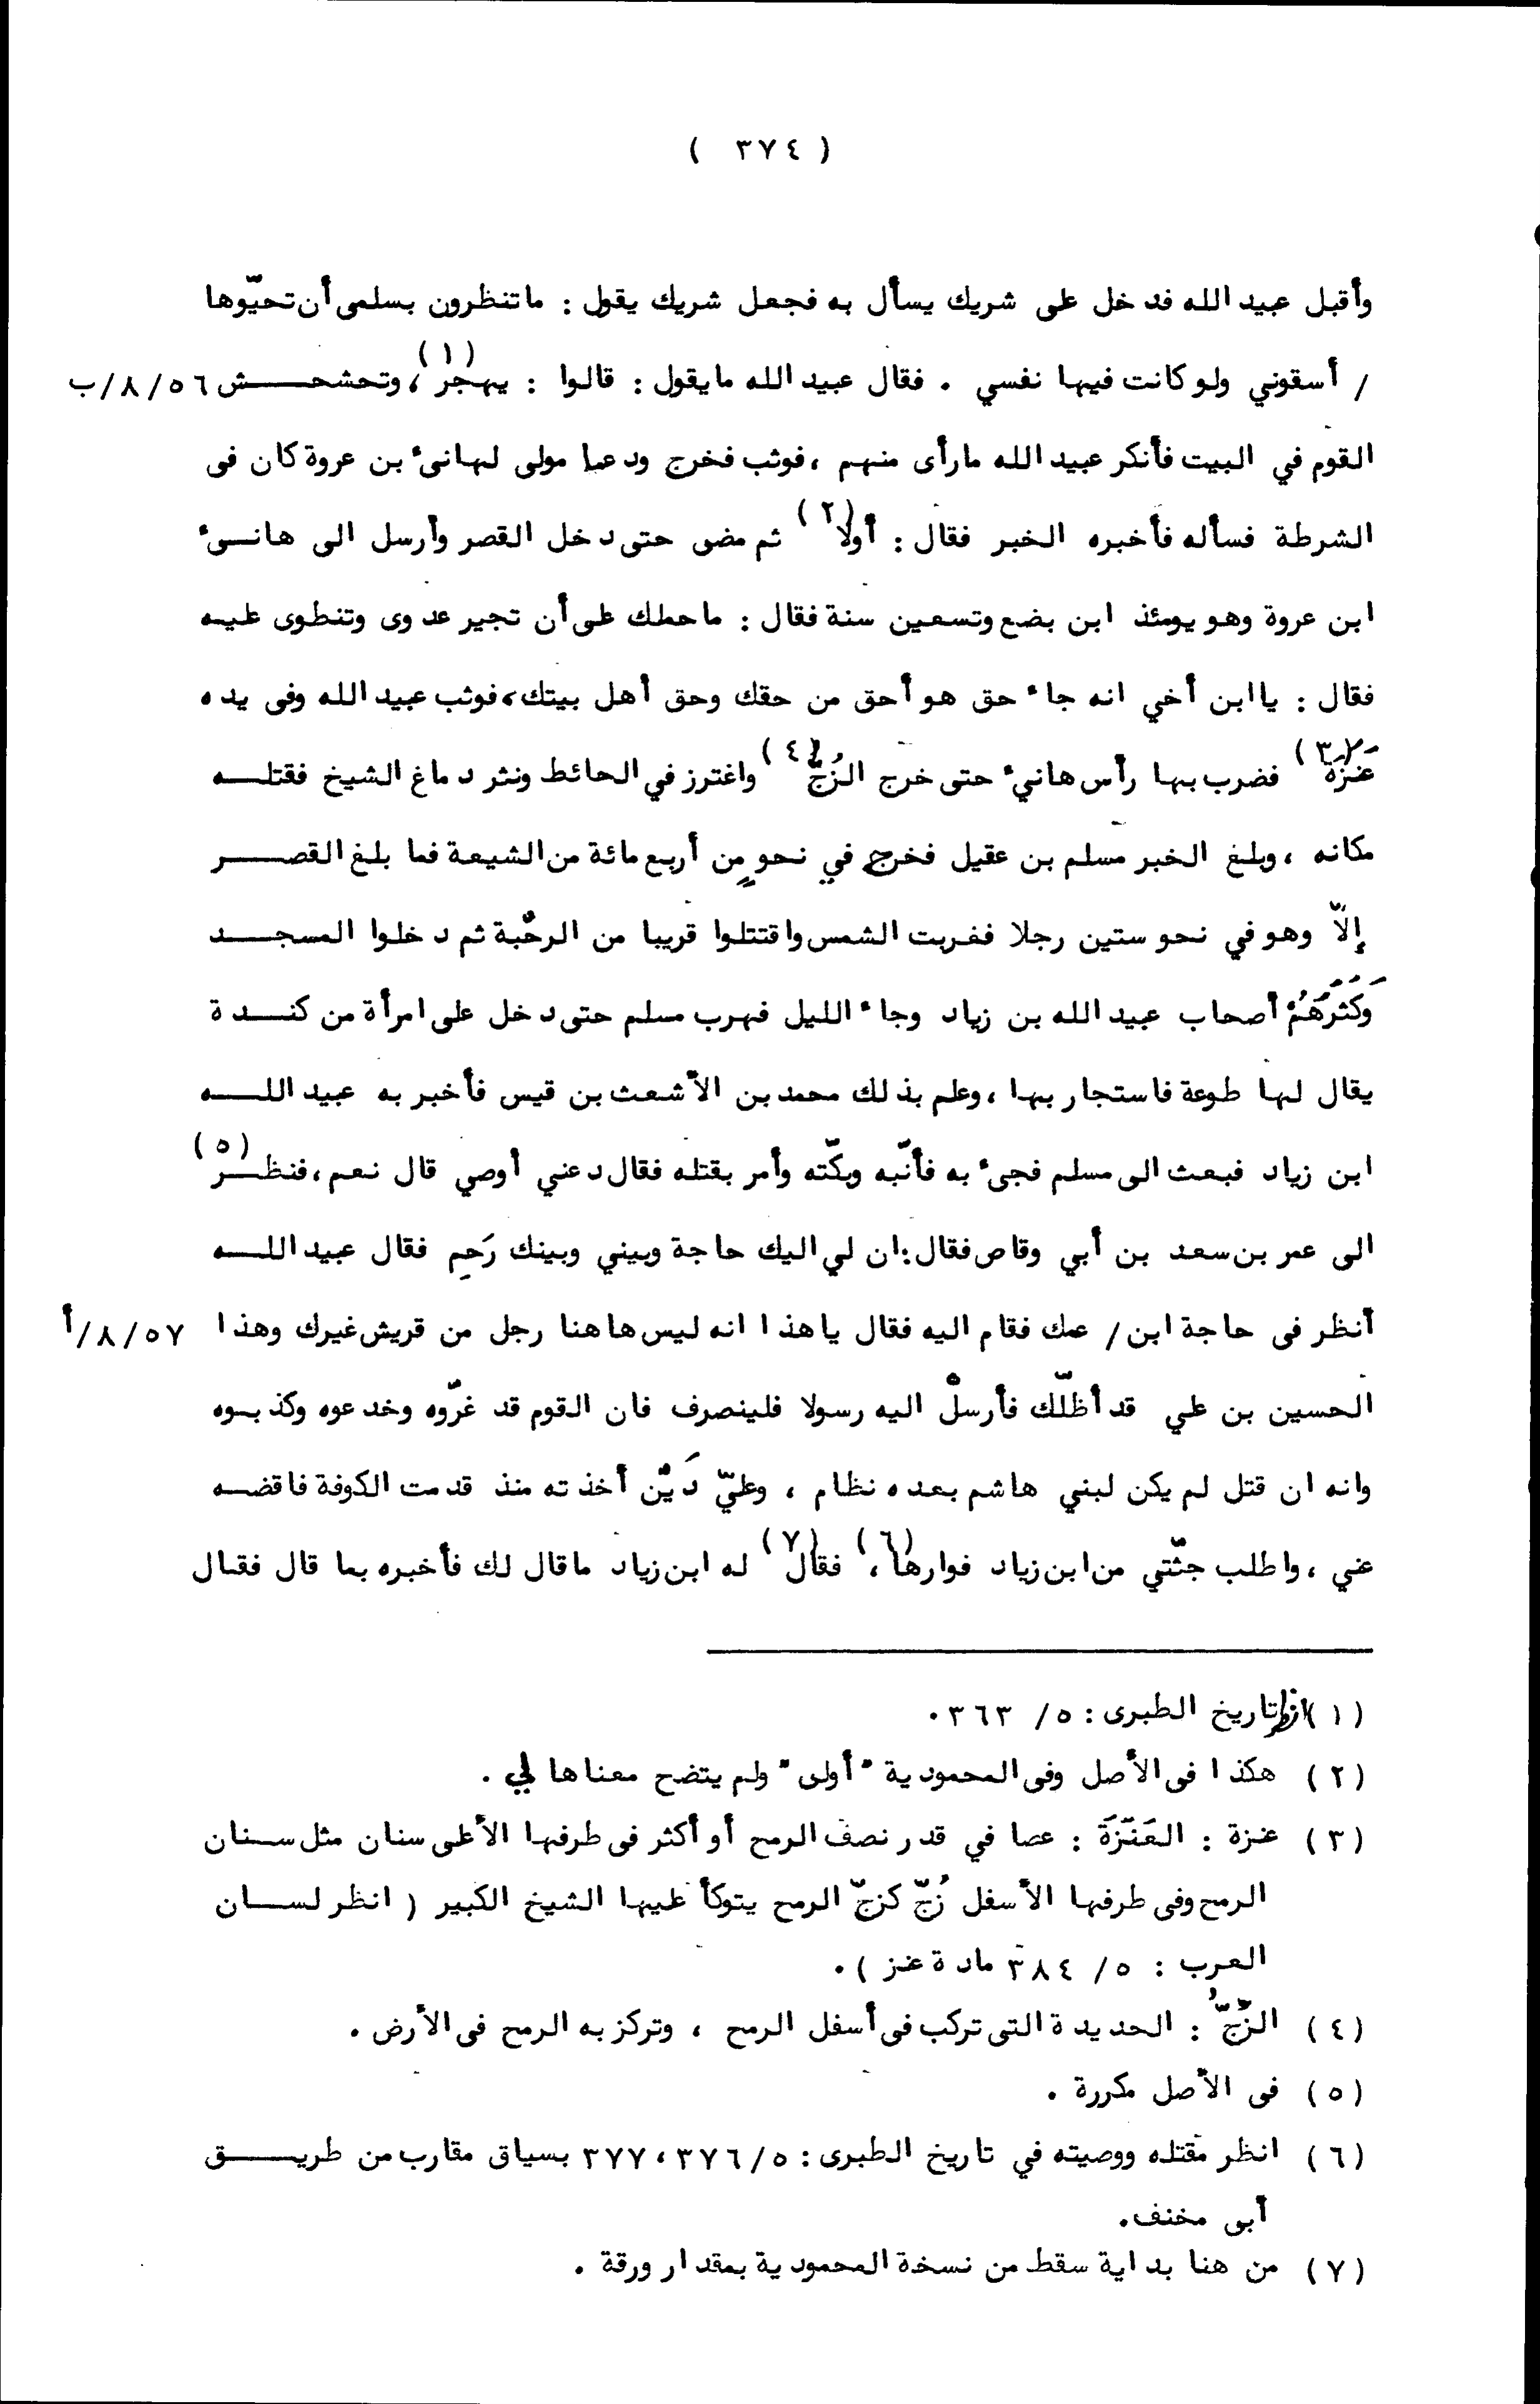 ( ٣٧٤ )
وأقبل عبيد الله فدخل على شريك يسأل به فجعل شريك يقول : ماتنظرون بسلمى أن تحيّوها
/ أسقوني ولو كانت فيها نفسي . فقال عبيد الله مايقول : قالوا : يهجر (١) ، وتحشحش ٥٦/٨/ب
القوم في البيت فأنكر عبيد الله مارأى منهم ، فوثب فخرج ودعا مولى لهانىء بن عروة كان فى
الشرطة فسأله فأخبره الخبر فقال : أولا (٢) ثم مضى حتى دخل القصر وأرسل الى هانىء
ابن عروة وهو يومئذ ابن بضع وتسعين سنة فقال : ماحملك على أن تجير عدوى وتنطوى عليه
فقال : يا ابن أخي انه جاء حق هو أحق من حقك وحق أهل بيتك ، فوثب عبيد الله وفى يده
عَنَزَة (٣) فضرب بها رأس هانيء حتى خرج الزُجّ (٤) واغترز في الحائط ونثر دماغ الشيخ فقتله
مكانه ، وبلغ الخبر مسلم بن عقيل فخرج في نحوٍ من أربع مائة من الشيعة فما بلغ القصر
إلاّ وهو في نحو ستين رجلا فغربت الشمس واقتتلوا قريبا من الرحْبة ثم دخلوا المسجد
وَكَثَرَهُمْ أصحاب عبيد الله بن زياد وجاء الليل فهرب مسلم حتى دخل على امرأة من كندة
يقال لها طوعة فاستجار بها ، وعلم بذلك محمد بن الأشعث بن قيس فأخبر به عبيد الله
ابن زياد فبعث الى مسلم فجىء به فأنّبه وبكّته وأمر بقتله فقال دعني أوصي قال نعم ، فنظر (٥)
الى عمر بن سعد بن أبي وقاص فقال : ان لي اليك حاجة وبيني وبينك رَحِم فقال عبيد الله
أنظر فى حاجة ابن / عمك فقام اليه فقال ياهذا انه ليس هاهنا رجل من قريش غيرك وهذا ٥٧/٨/أ
الحسين بن علي قد أظلّك فأرسلْ اليه رسولا فلينصرف فان القوم قد غرّوه وخدعوه وكذبوه
وانه ان قتل لم يكن لبني هاشم بعده نظام ، وعليّ دَيْن أخذته منذ قدمت الكوفة فاقضه
عني ، واطلب جثّتي من ابن زياد فوارها (٦) ، فقال (٧) له ابن زياد ماقال لك فأخبره بما قال فقال
(١) انظر تاريخ الطبرى : ٥/ ٣٦٣ .
(٢) هكذا فى الأصل وفى المحمودية "أولى" ولم يتضح معناها لي .
(٣) عنزة : العَنَزَة : عصا في قدر نصف الرمح أو أكثر فى طرفها الأعلى سنان مثل سنان
الرمح وفى طرفها الأسفل زُجّ كزجّ الرمح يتوكأ عليها الشيخ الكبير ( انظر لسان
العرب : ٥/ ٣٨٤ مادة عنز ) .
(٤) الزُّجّ : الحديدة التى تركب فى أسفل الرمح ، وتركز به الرمح فى الأرض .
(٥) فى الأصل مكررة .
(٦) انظر مقتله ووصيته في تاريخ الطبرى : ٥/ ٣٧٦ ، ٣٧٧ بسياق مقارب من طريق
أبى مخنف .
(٧) من هنا بداية سقط من نسخة المحمودية بمقدار ورقة .